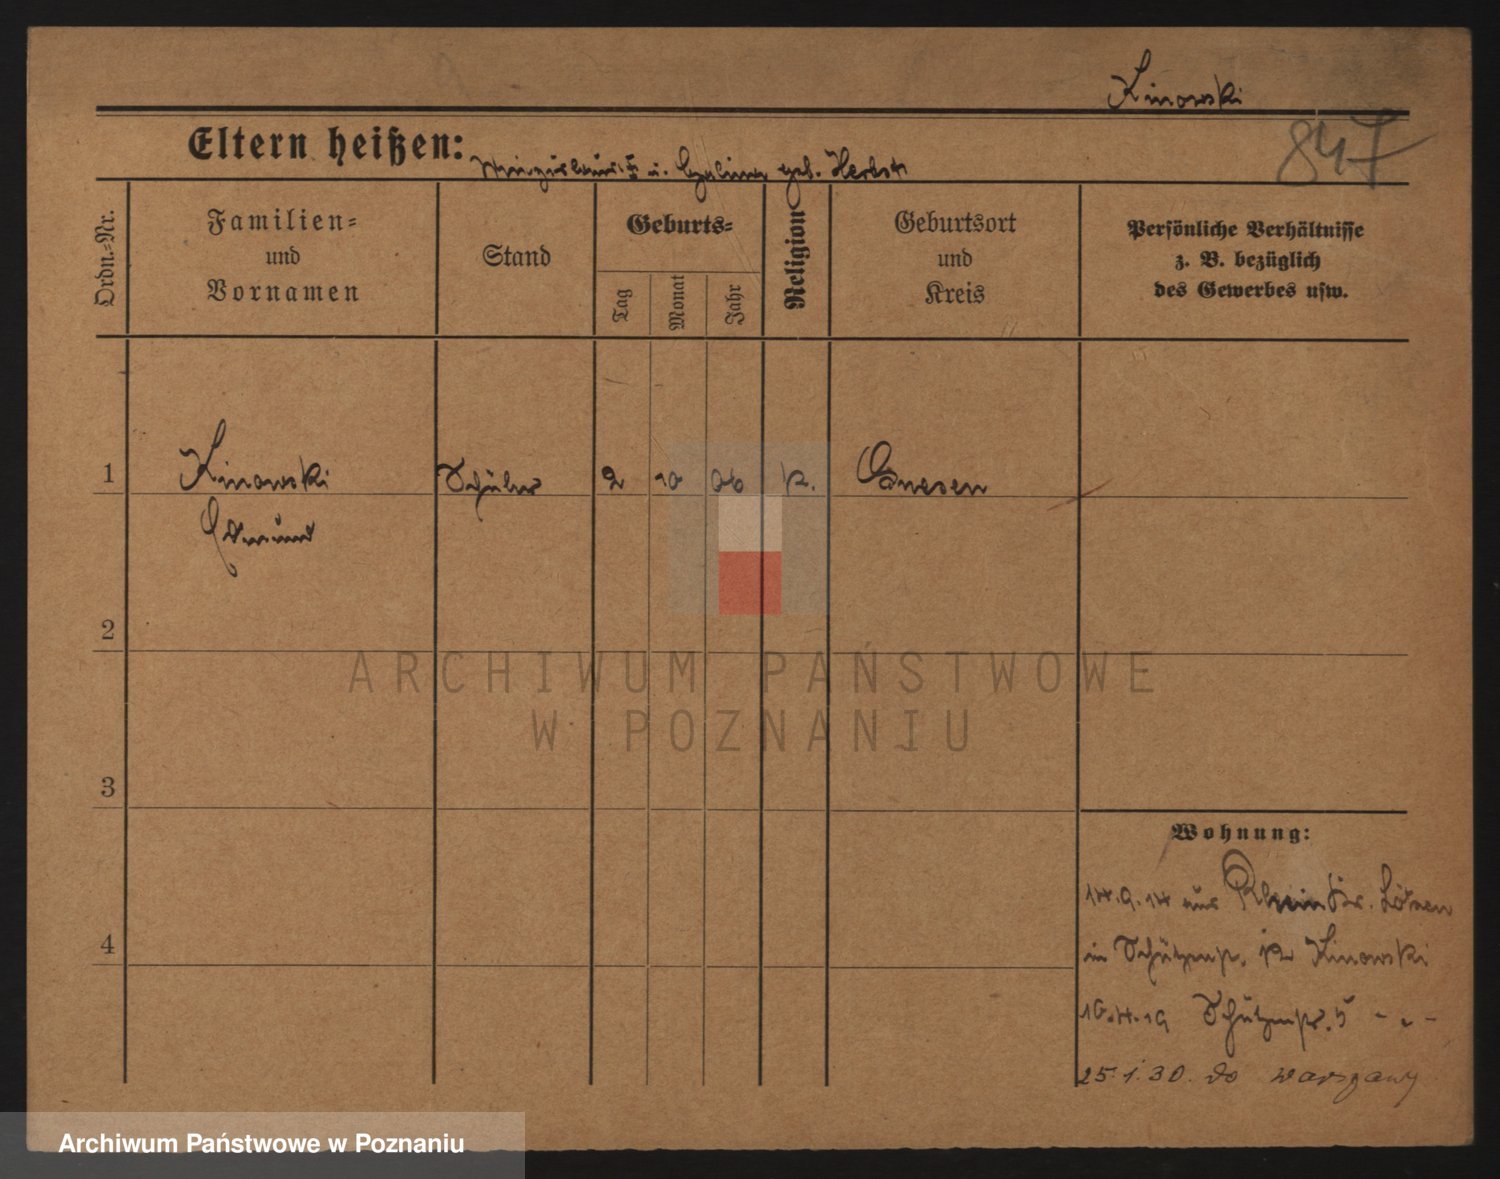 Kinowski
847
Eltern heißen: u. geb. Herbst
Ordn.=Nr.
Familien=
und
Vornamen
Stand
Geburts=
Tag
Monat
Jahr
Religion
Geburtsort
und
Kreis
Persönliche Verhältnisse
z. B. bezüglich
des Gewerbes usw.
1 Kinowski Schüler 2 10 06 k. Gnesen
Edmund
2
3
4
Wohnung:
14.9.14 aus Rhein Kr. Lötzen
in Schützenstr. 12 Kinowski
16.4.19 Schützenstr. 5 - „ -
25.1.30. do Warszawy
ARCHIWUM PAŃSTWOWE
W POZNANIU
Archiwum Państwowe w Poznaniu